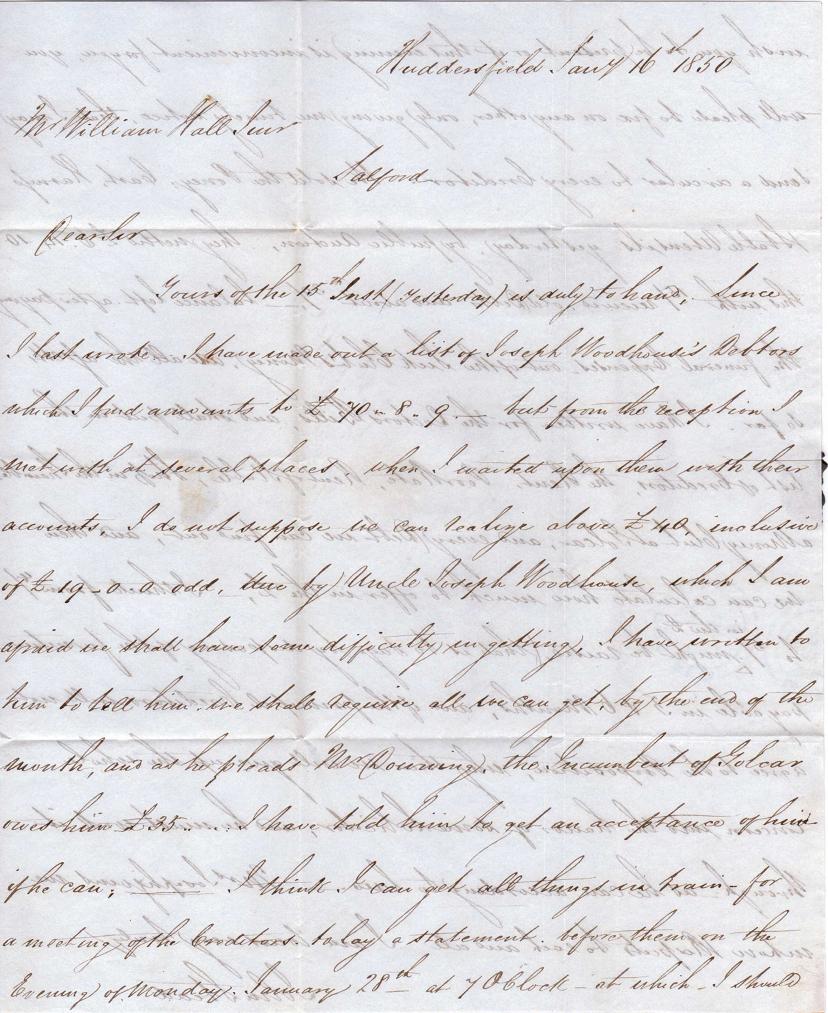 Huddersfield Jany 16th 1850
Mr William Hall Junr
Salford
Dear Sir
Yours of the 15th Inst (Yesterday) is duly to hand. Since
I last wrote I have made out a list of Joseph Woodhouse's Debtors
which I find amounts to £ 70 " 8 " 9 — but from the reception I
met with at several places, when I waited upon them with their
accounts, I do not suppose we can realize above £40, inclusive
of £19-0 0 odd, due by Uncle Joseph Woodhouse, which I am
afraid we shall have some difficulty in getting, I have written to
him to tell him we shall require all we can get, by the end of the
month, and as he pleads Mr Downing, the Incumbent of Golcar
owes him £35... I have told him to get an acceptance of him
if he can; — I think I can get all things in train - for
a meeting of the Creditors. to lay a statement before them on the
Evening of Monday. January 28th at 7 OClock - at which - I should